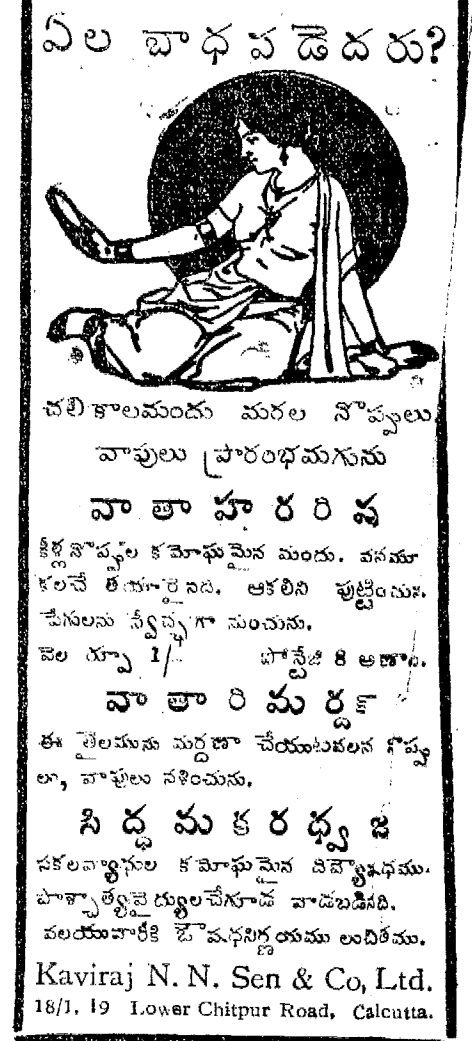 ఏల బాధపడెదరు?
చలికాలమందు మగల నొప్పులు,
వాపులు ప్రారంభమగును
వాతాహరరిష
కీళ్లనొప్పుల కమోఘమైన మందు. వనమూ
కలచే తయారైనది. ఆకలిని పుట్టించును.
పేగులను స్వేచ్ఛగా నుంచును.
వెల రూపా 1/- పోస్టేజి 8 అణాలు.
వాతారిమర్దన్
ఈ తైలమును మర్దణా చేయుటవలన నొప్పు
లు, వాపులు నశించును.
సిద్ధమకరధ్వజ
సకలవ్యాధుల కమోఘమైన దివ్యౌషధము.
పాశ్చాత్యవైద్యులచేగూడ వాడబడినది.
వలయువారికి ఔషధనిర్ణయము ఉచితము.
Kaviraj N. N. Sen & Co, Ltd.
18/1, 19 Lower Chitpur Road, Calcutta.